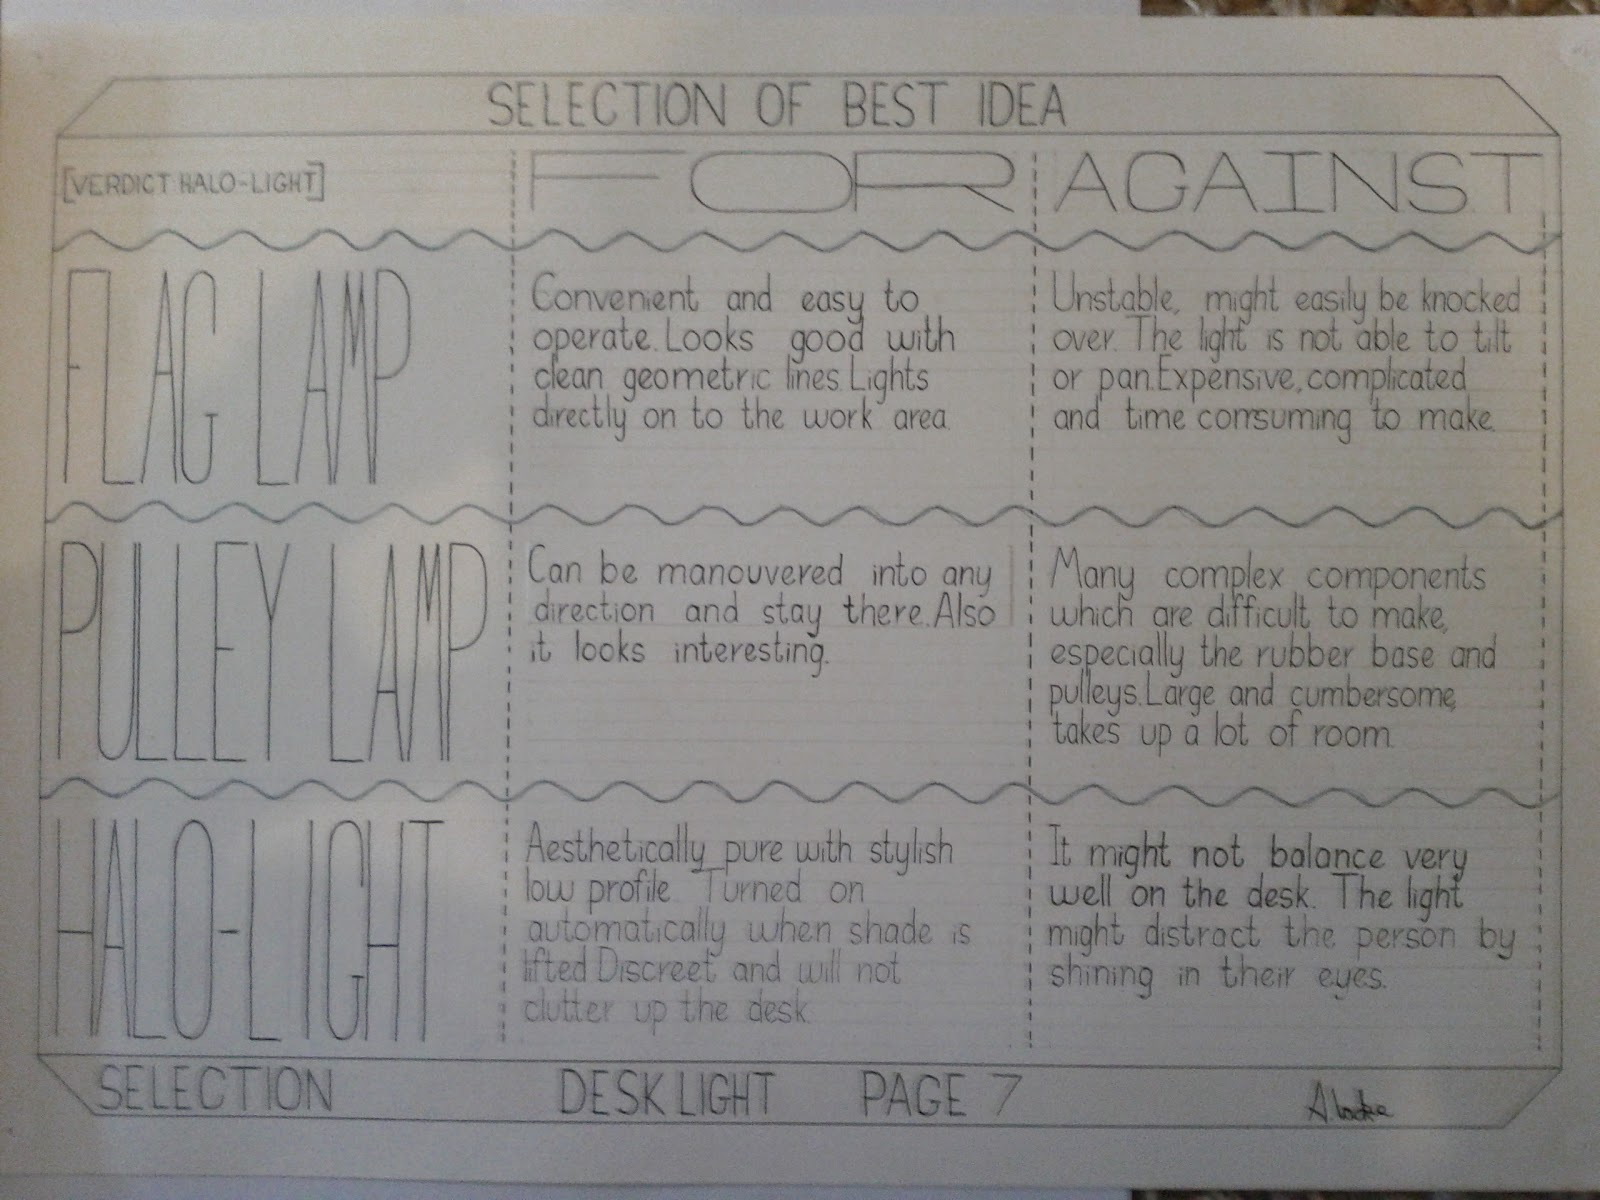 SELECTION OF BEST IDEA
[VERDICT HALO-LIGHT]
FOR
AGAINST
FLAG LAMP
Convenient and easy to
operate. Looks good with
clean geometric lines. Lights
directly on to the work area.
Unstable, might easily be knocked
over. The light is not able to tilt
or pan. Expensive, complicated
and time consuming to make.
PULLEY LAMP
Can be manouvered into any
direction and stay there. Also
it looks interesting.
Many complex components
which are difficult to make,
especially the rubber base and
pulleys. Large and cumbersome,
takes up a lot of room.
HALO-LIGHT
Aesthetically pure with stylish
low profile. Turned on
automatically when shade is
lifted. Discreet and will not
clutter up the desk.
It might not balance very
well on the desk. The light
might distract the person by
shining in their eyes.
SELECTION
DESK LIGHT PAGE 7